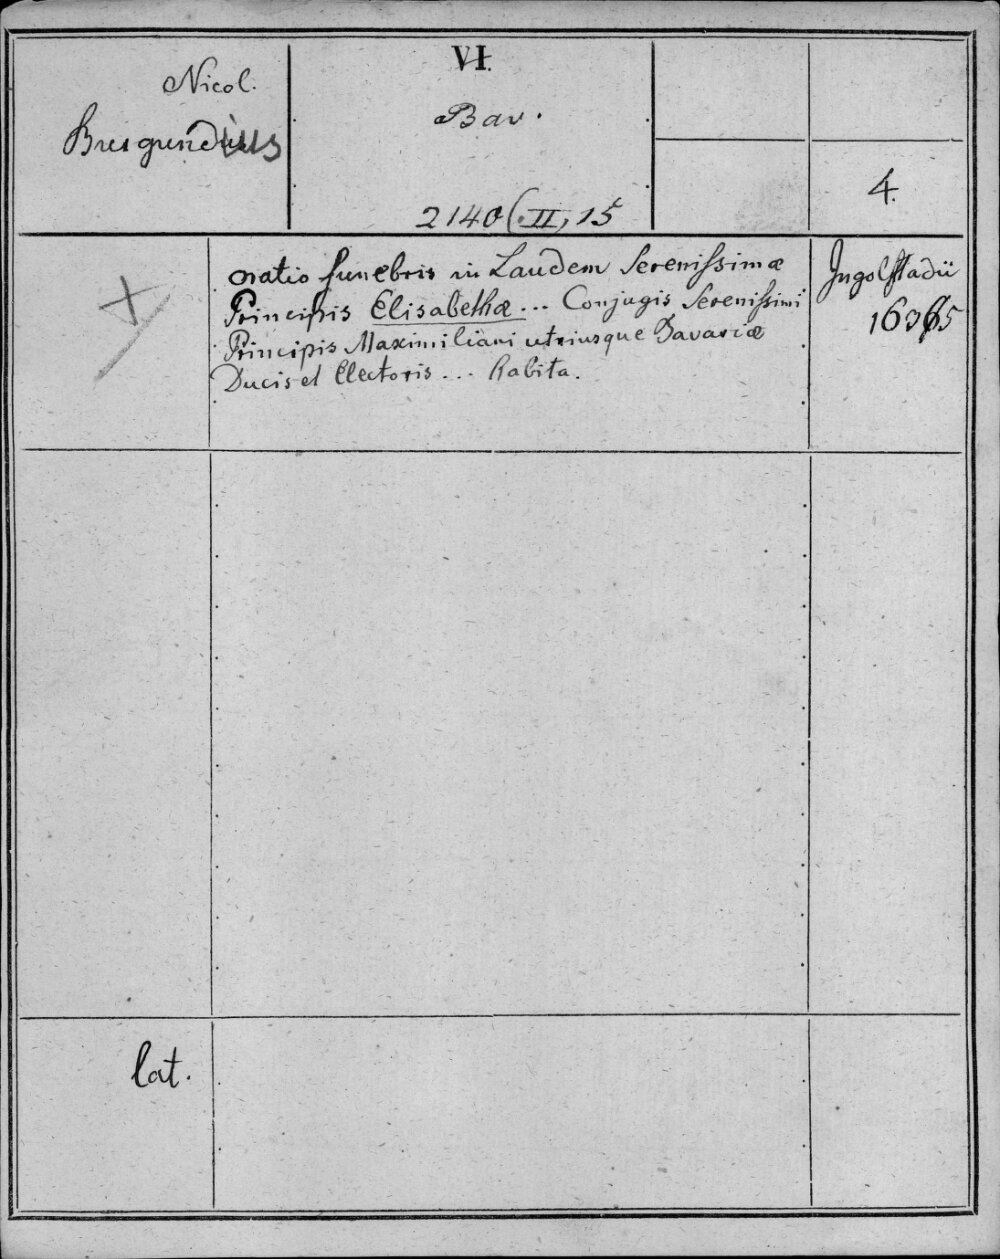 Nicol.
Burgundius
VI.
Bav.
2140 (II, 15
4.
Oratio funebris in Laudem Serenissimæ
Principis Elisabethæ ... Conjugis Serenissimi
Principis Maximiliani utriusque Bavariæ
Ducis et Electoris ... Habita.
Ingolstadii
1635
lat.